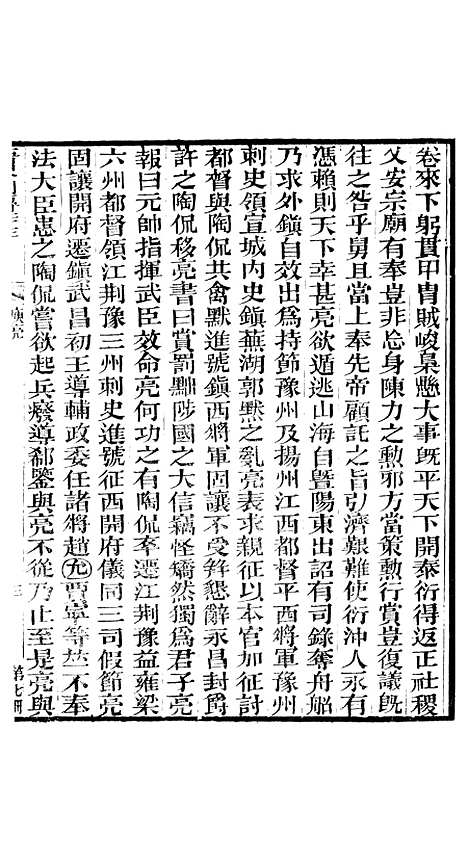 卷來下躬貫甲冑賊峻梟懸大事旣平天下開泰衍得返正社稷
乂安宗廟有奉豈非舅忘身陳力之勲邪方當策勲行賞豈復議旣
往之咎乎舅且當上奉先帝顧託之旨引濟艱難使衍沖人永有
憑賴則天下幸甚亮欲遁逃山海自暨陽東出詔有司錄奪舟船
乃求外鎭自效出爲持節豫州及揚州江西都督平西將軍豫州
刺史領宣城內史鎭蕪湖郭默之亂亮表求親征以本官加征討
都督與陶侃共禽默進號鎭西將軍固讓不受辤懇辭永昌封爵
許之陶侃移亮書曰賞罰黜陟國之大信竊怪矯然獨爲君子亮
報曰元帥指揮武臣效命亮何功之有陶侃卒遷江荆豫益雍梁
六州都督領江荆豫三州刺史進號征西開府儀同三司假節亮
固讓開府遷鎭武昌初王導輔政委任諸將趙允賈寧等並不奉
法大臣患之陶侃嘗欲起兵廢導郗鑒與亮不從乃止至是亮與
庾亮
第七冊